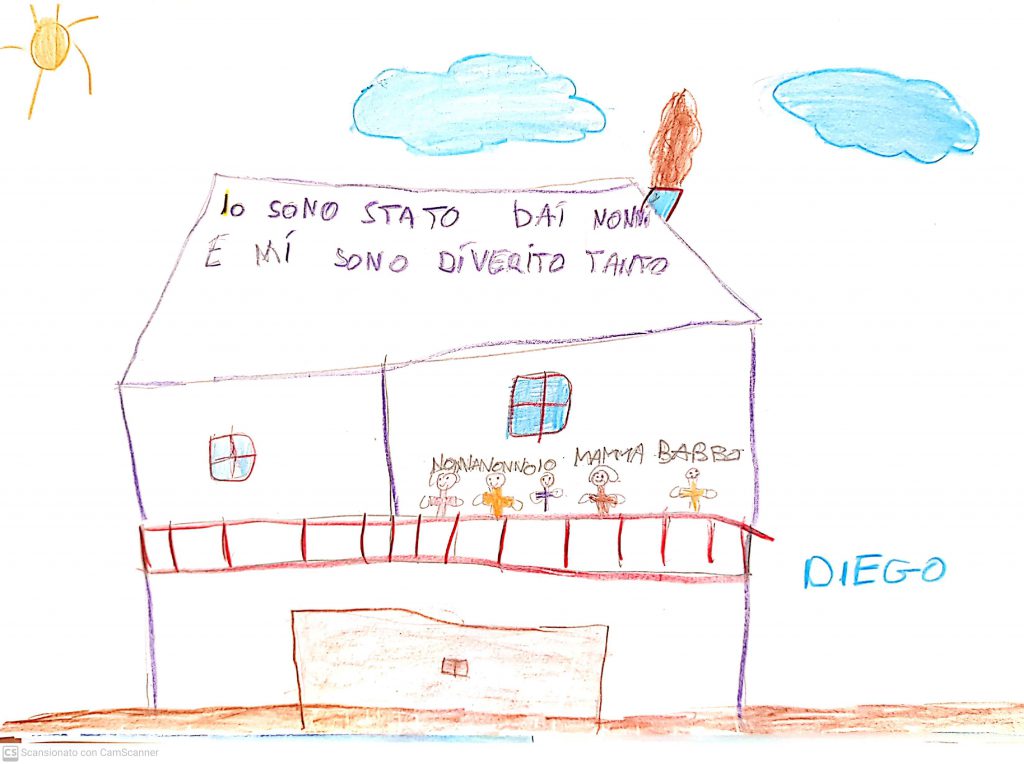 Io SONO STATO DAI NONNI
E MI SONO DIVERITO TANTO
NONNANONNOIO MAMMA BABBO
DIEGO
CS Scansionato con CamScanner